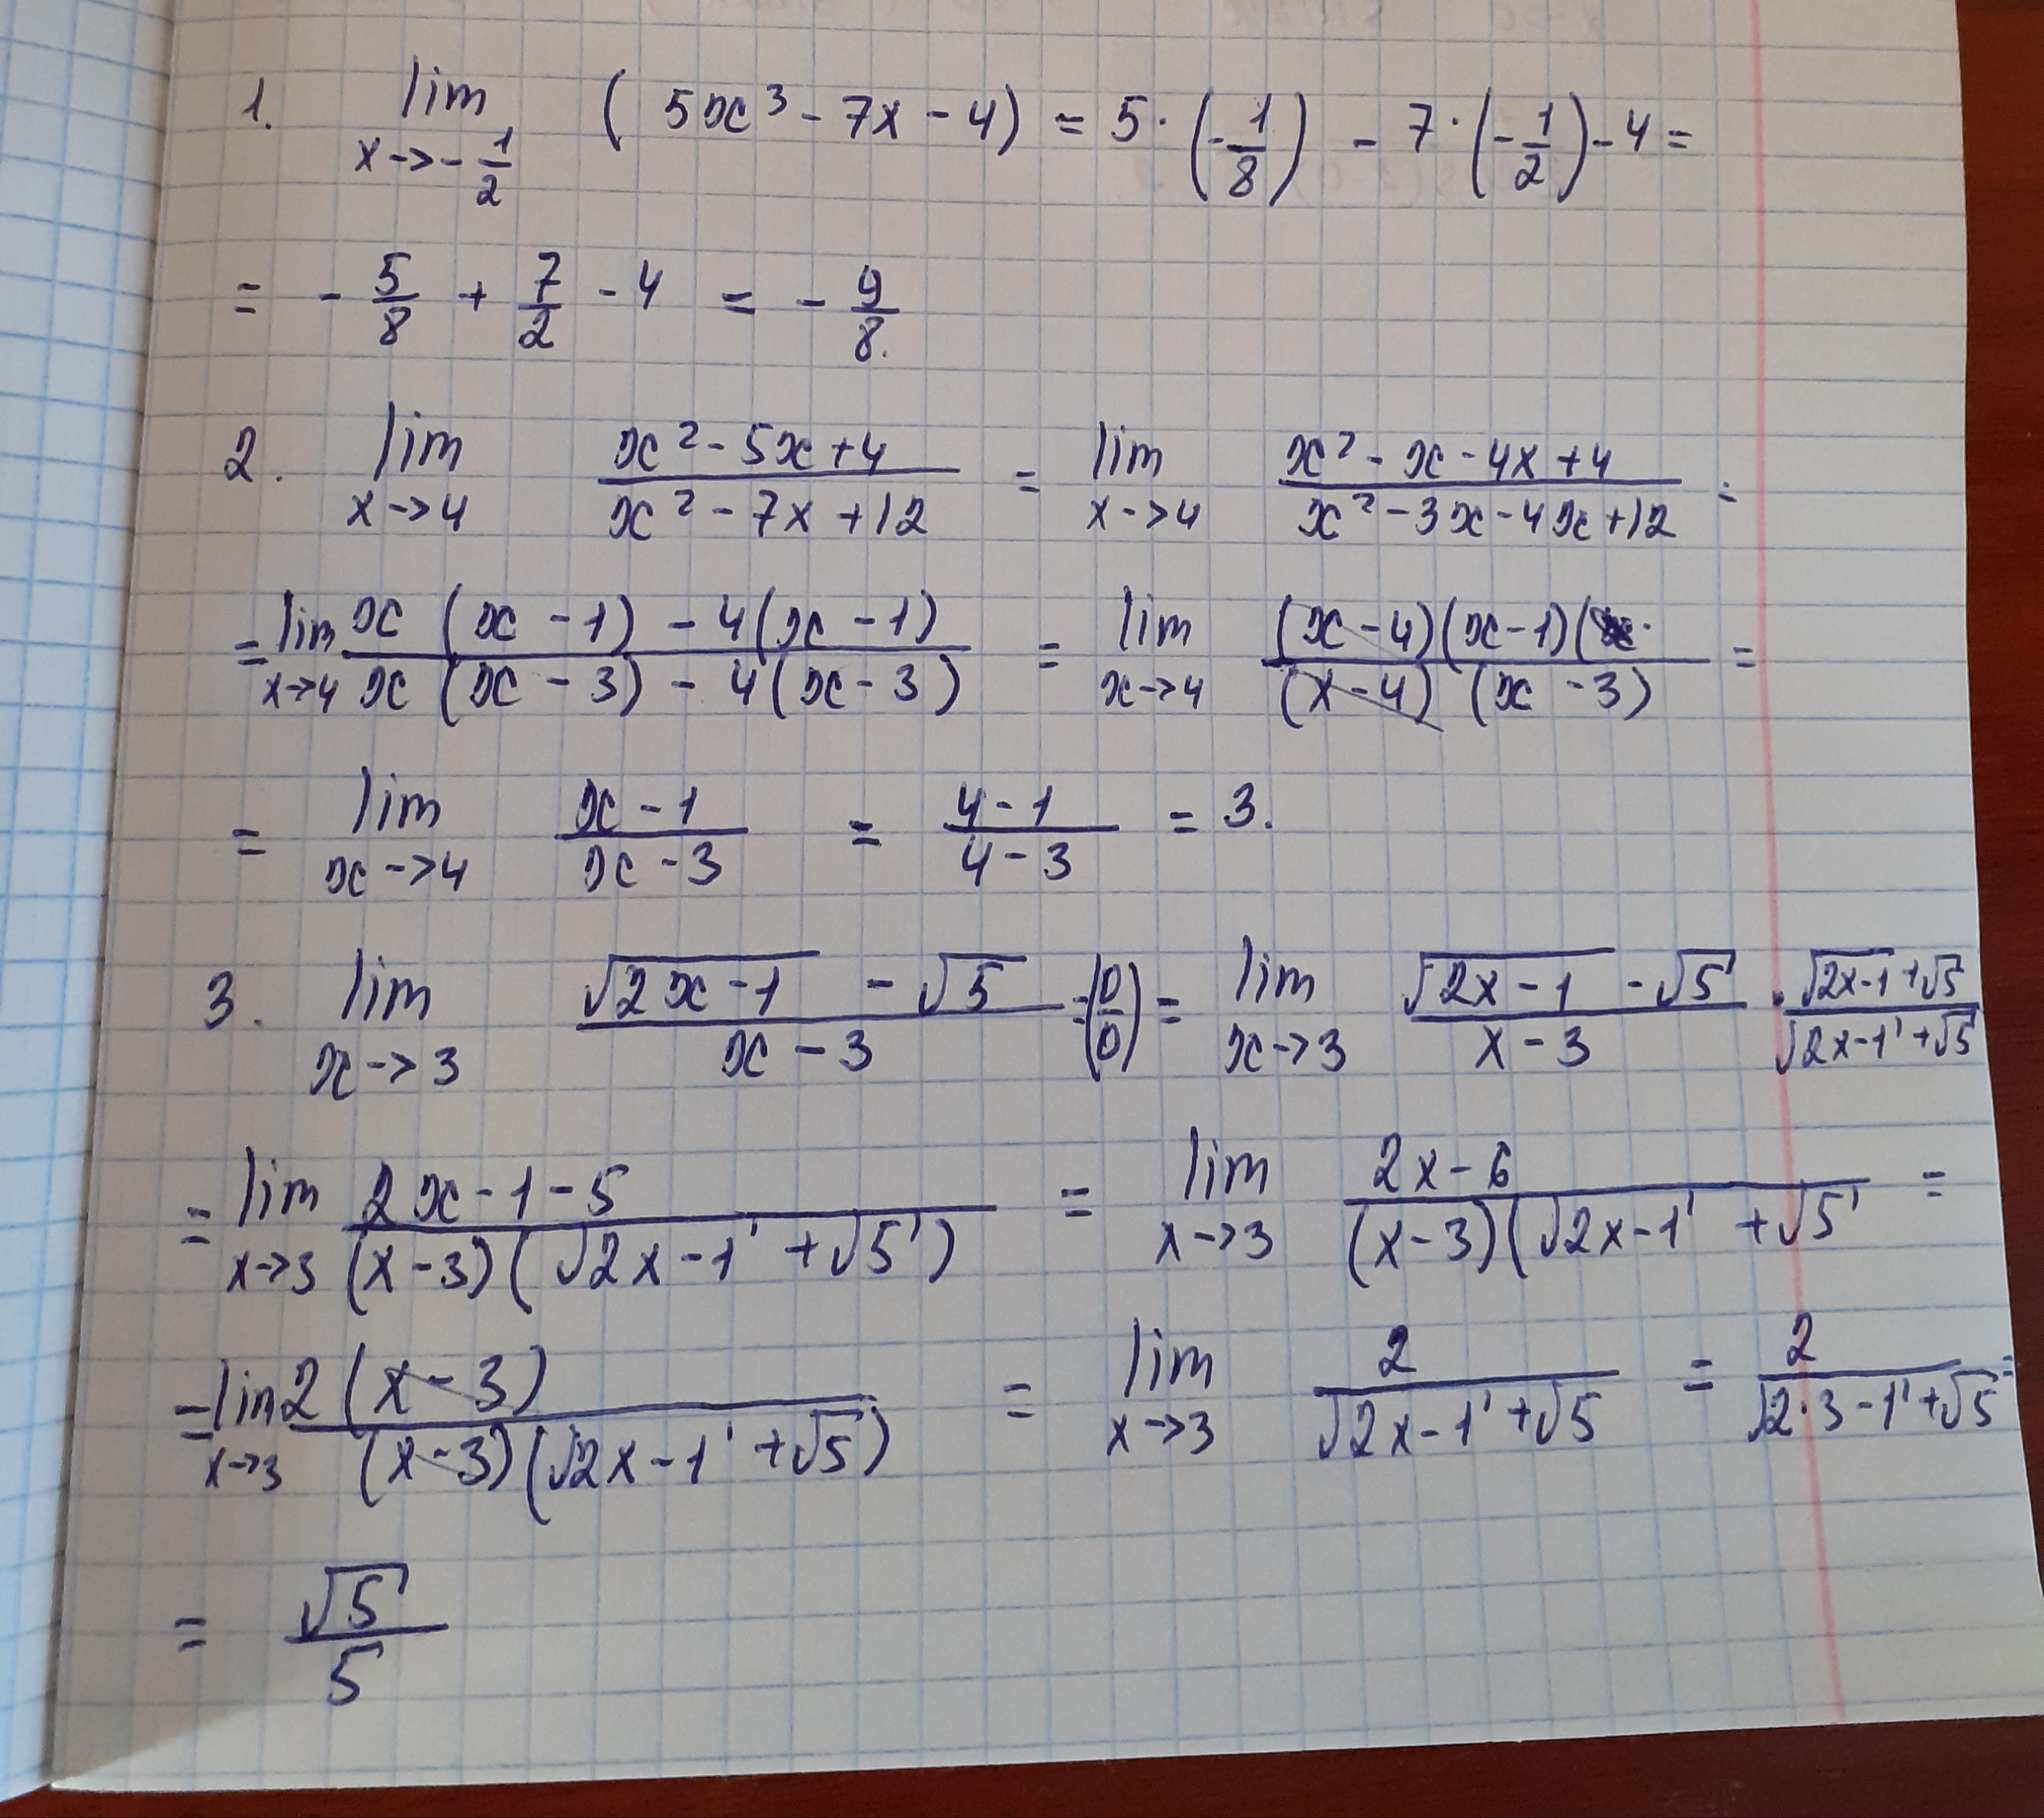 1. lim x→-1/2 (5x³ - 7x - 4) = 5·(-1/8) - 7·(-1/2) - 4 =
= - 5/8 + 7/2 - 4 = - 9/8.
2. lim x→4 (x² - 5x + 4)/(x² - 7x + 12) = lim x→4 (x² - x - 4x + 4)/(x² - 3x - 4x + 12) =
= lim x→4 (x(x - 1) - 4(x - 1))/(x(x - 3) - 4(x - 3)) = lim x→4 ((x - 4)(x - 1)()/((x - 4)(x - 3)) =
= lim x→4 (x - 1)/(x - 3) = (4 - 1)/(4 - 3) = 3.
3. lim x→3 (√(2x - 1) - √5)/(x - 3) = (0/0) = lim x→3 (√(2x - 1) - √5)/(x - 3) · (√(2x - 1) + √5)/(√(2x - 1) + √5)
= lim x→3 (2x - 1 - 5)/((x - 3)(√(2x - 1) + √5)) = lim x→3 (2x - 6)/((x - 3)(√(2x - 1) + √5 =
= lim x→3 2(x - 3)/((x - 3)(√(2x - 1) + √5)) = lim x→3 2/(√(2x - 1) + √5) = 2/(√(2·3 - 1) + √5) =
= √5/5